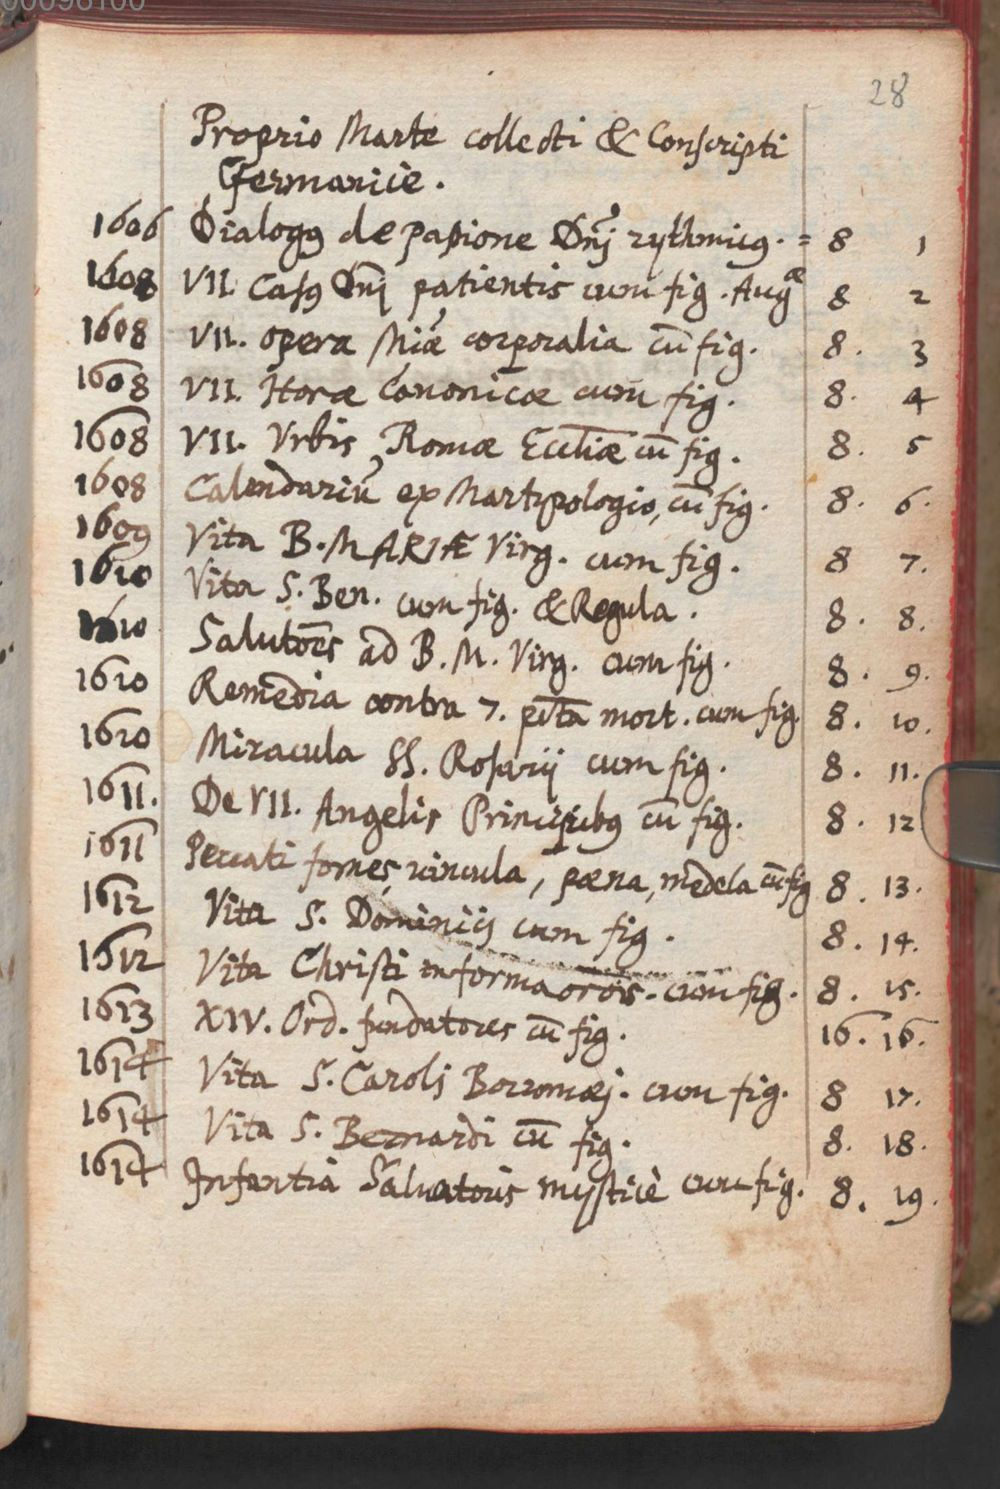 00098100
28
Proprio Marte collecti & Conscripti
Germanicè.
1606 Dialogꝰ de passione Dn̄j rythmicꝰ. = 8 1
1608 VII. Casꝰ Dn̄j patientis cum fig. Augæ 8 2
1608 VII. opera Miæ corporalia cū fig. 8. 3
1608 VII. Horæ Canonicæ cum fig. 8. 4
1608 VII. Vrbis Romæ Eccliæ cū fig. 8. 5
1608 Calendariū ex Martyrologio, cū fig. 8. 6.
1609 Vita B. MARIÆ Virg. cum fig. 8 7.
1610 Vita S. Ben. cum fig. & Regula. 8. 8.
1610 Salutoēs ad B. M. Virg. cum fig. 8. 9.
1610 Remedia contra 7. pctā mort. cum fig. 8. 10.
1610 Miracula SS. Rosarij cum fig. 8. 11.
1611. De VII. Angelis Principibꝰ cū fig. 8. 12
1611 Peccati fomes, vincula, pœna, medela cū fig 8. 13.
1612 Vita S. Dominicj cum fig. 8. 14.
1612 Vita Christi in forma orōis. cum fig. 8. 15.
1613 XIV. Ord. fundatores cū fig. 16. 16.
1614 Vita S. Carolj Borromæj. cum fig. 8 17.
1614 Vita S. Bernardi cū fig. 8. 18.
1614 Infantia Saluatoris mysticè cum fig. 8. 19.